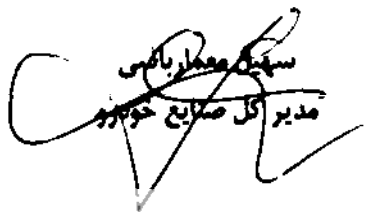 سهیل معمارباشی
مدیر کل صنایع خودرو